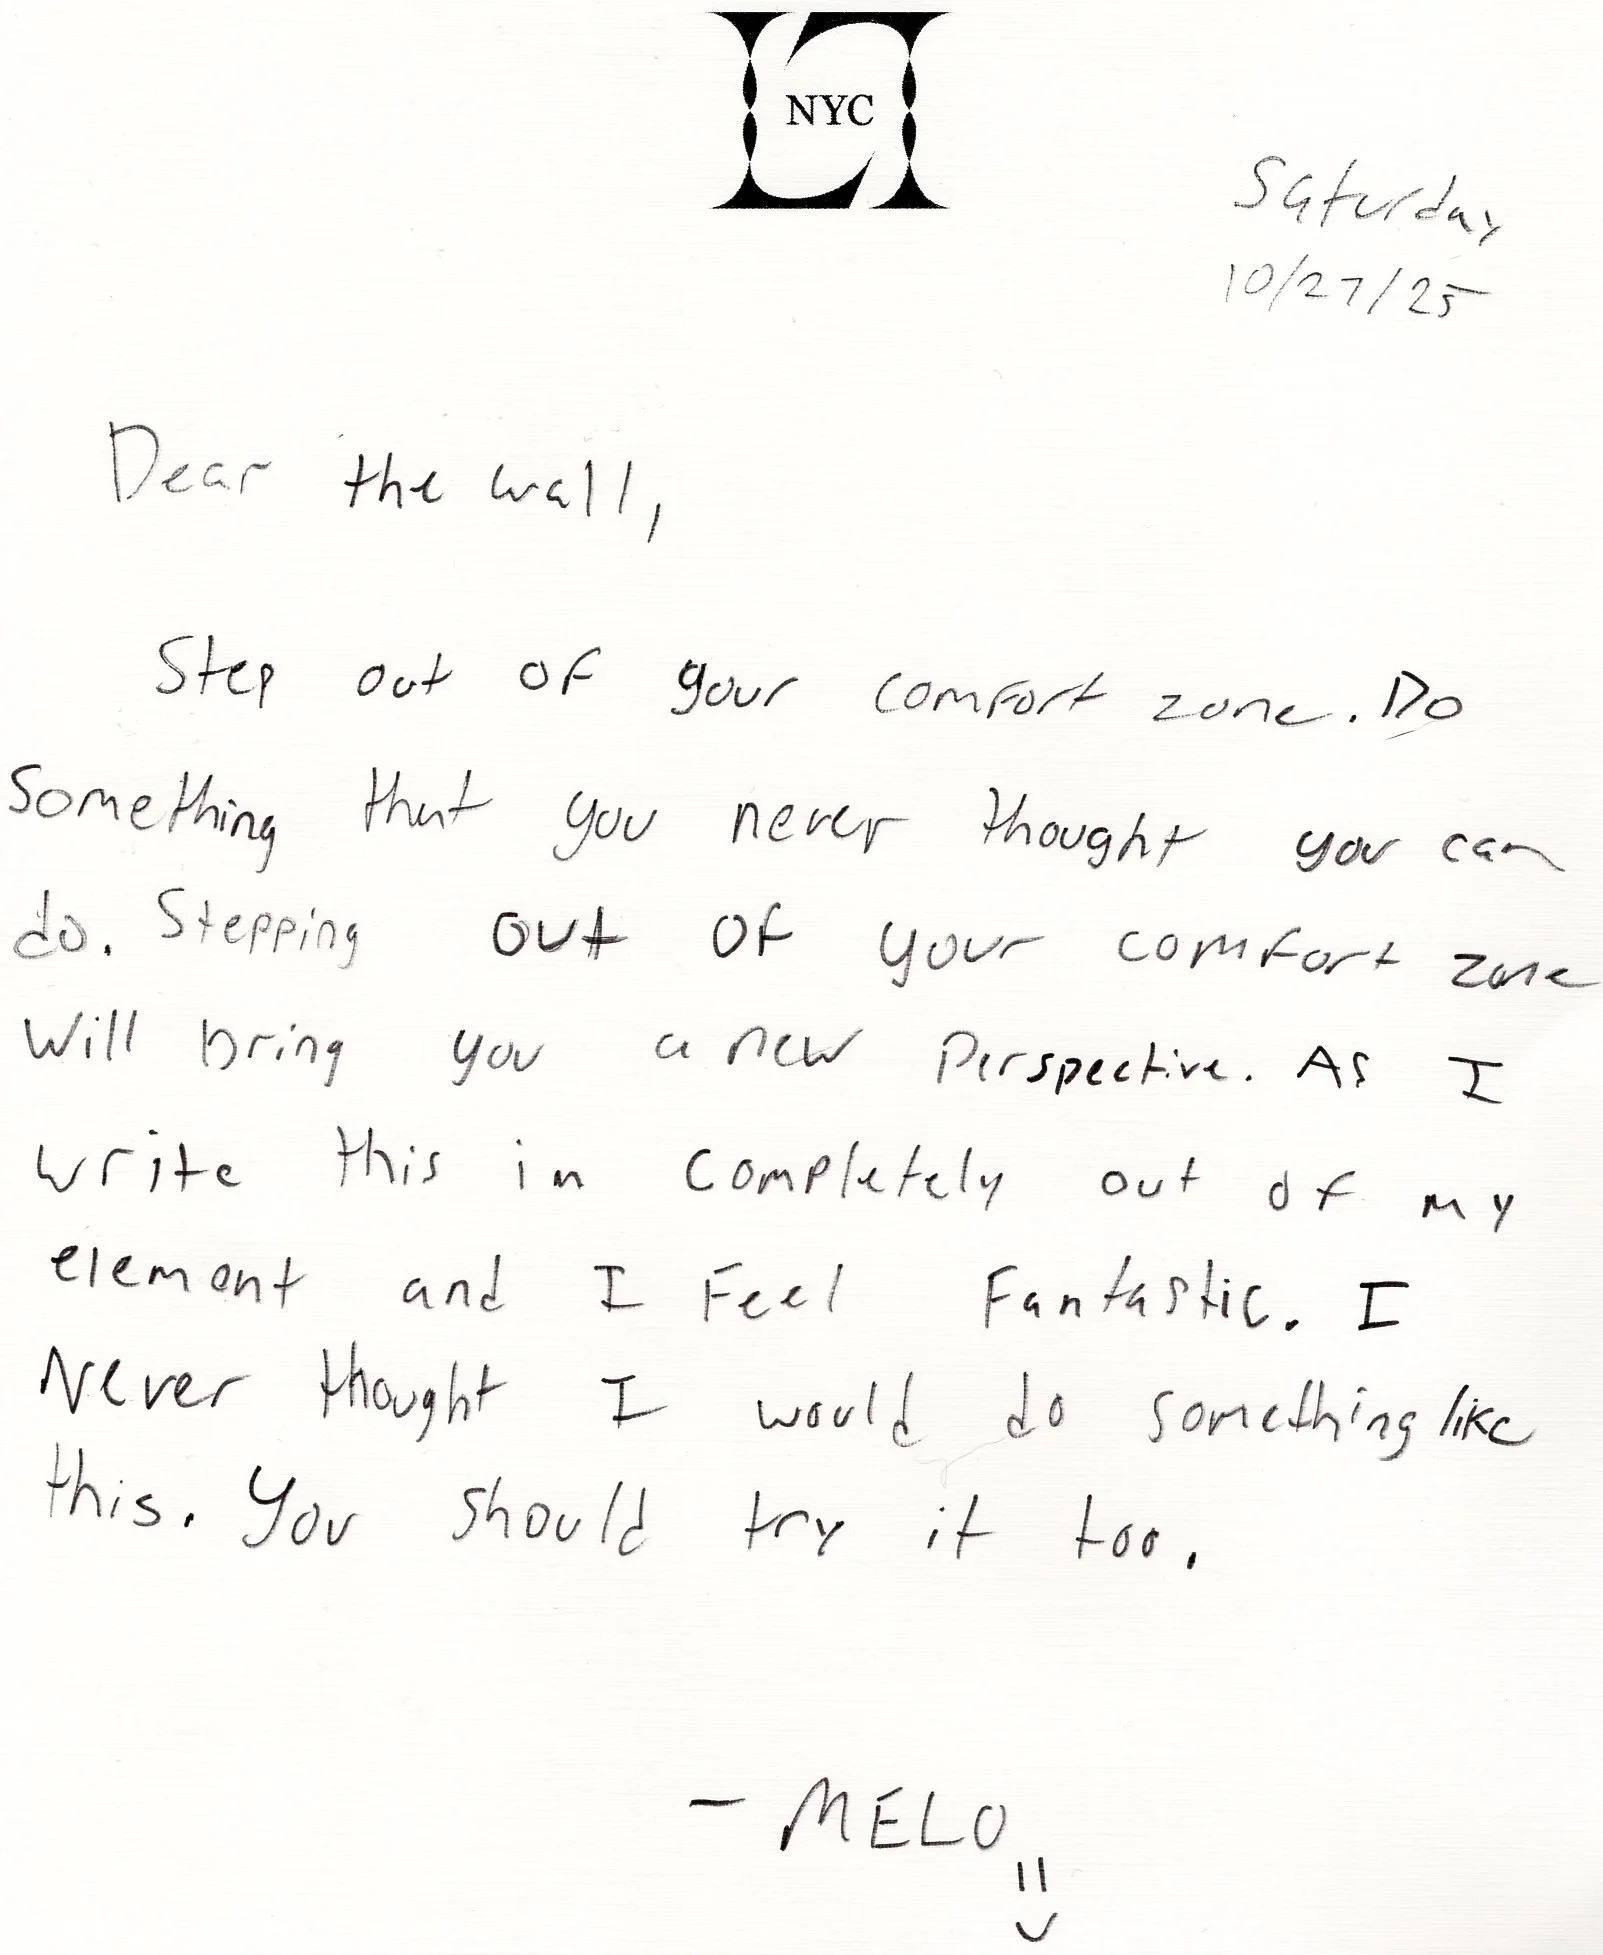 NYC
Saturday
10/27/25
Dear the wall,
Step out of your comfort zone. Do
Something that you never thought you can
do. Stepping out of your comfort zone
Will bring you a new Perspective. As I
write this in completely out of my
element and I Feel Fantastic. I
Never thought I would do something like
this. You should try it too.
- MELO